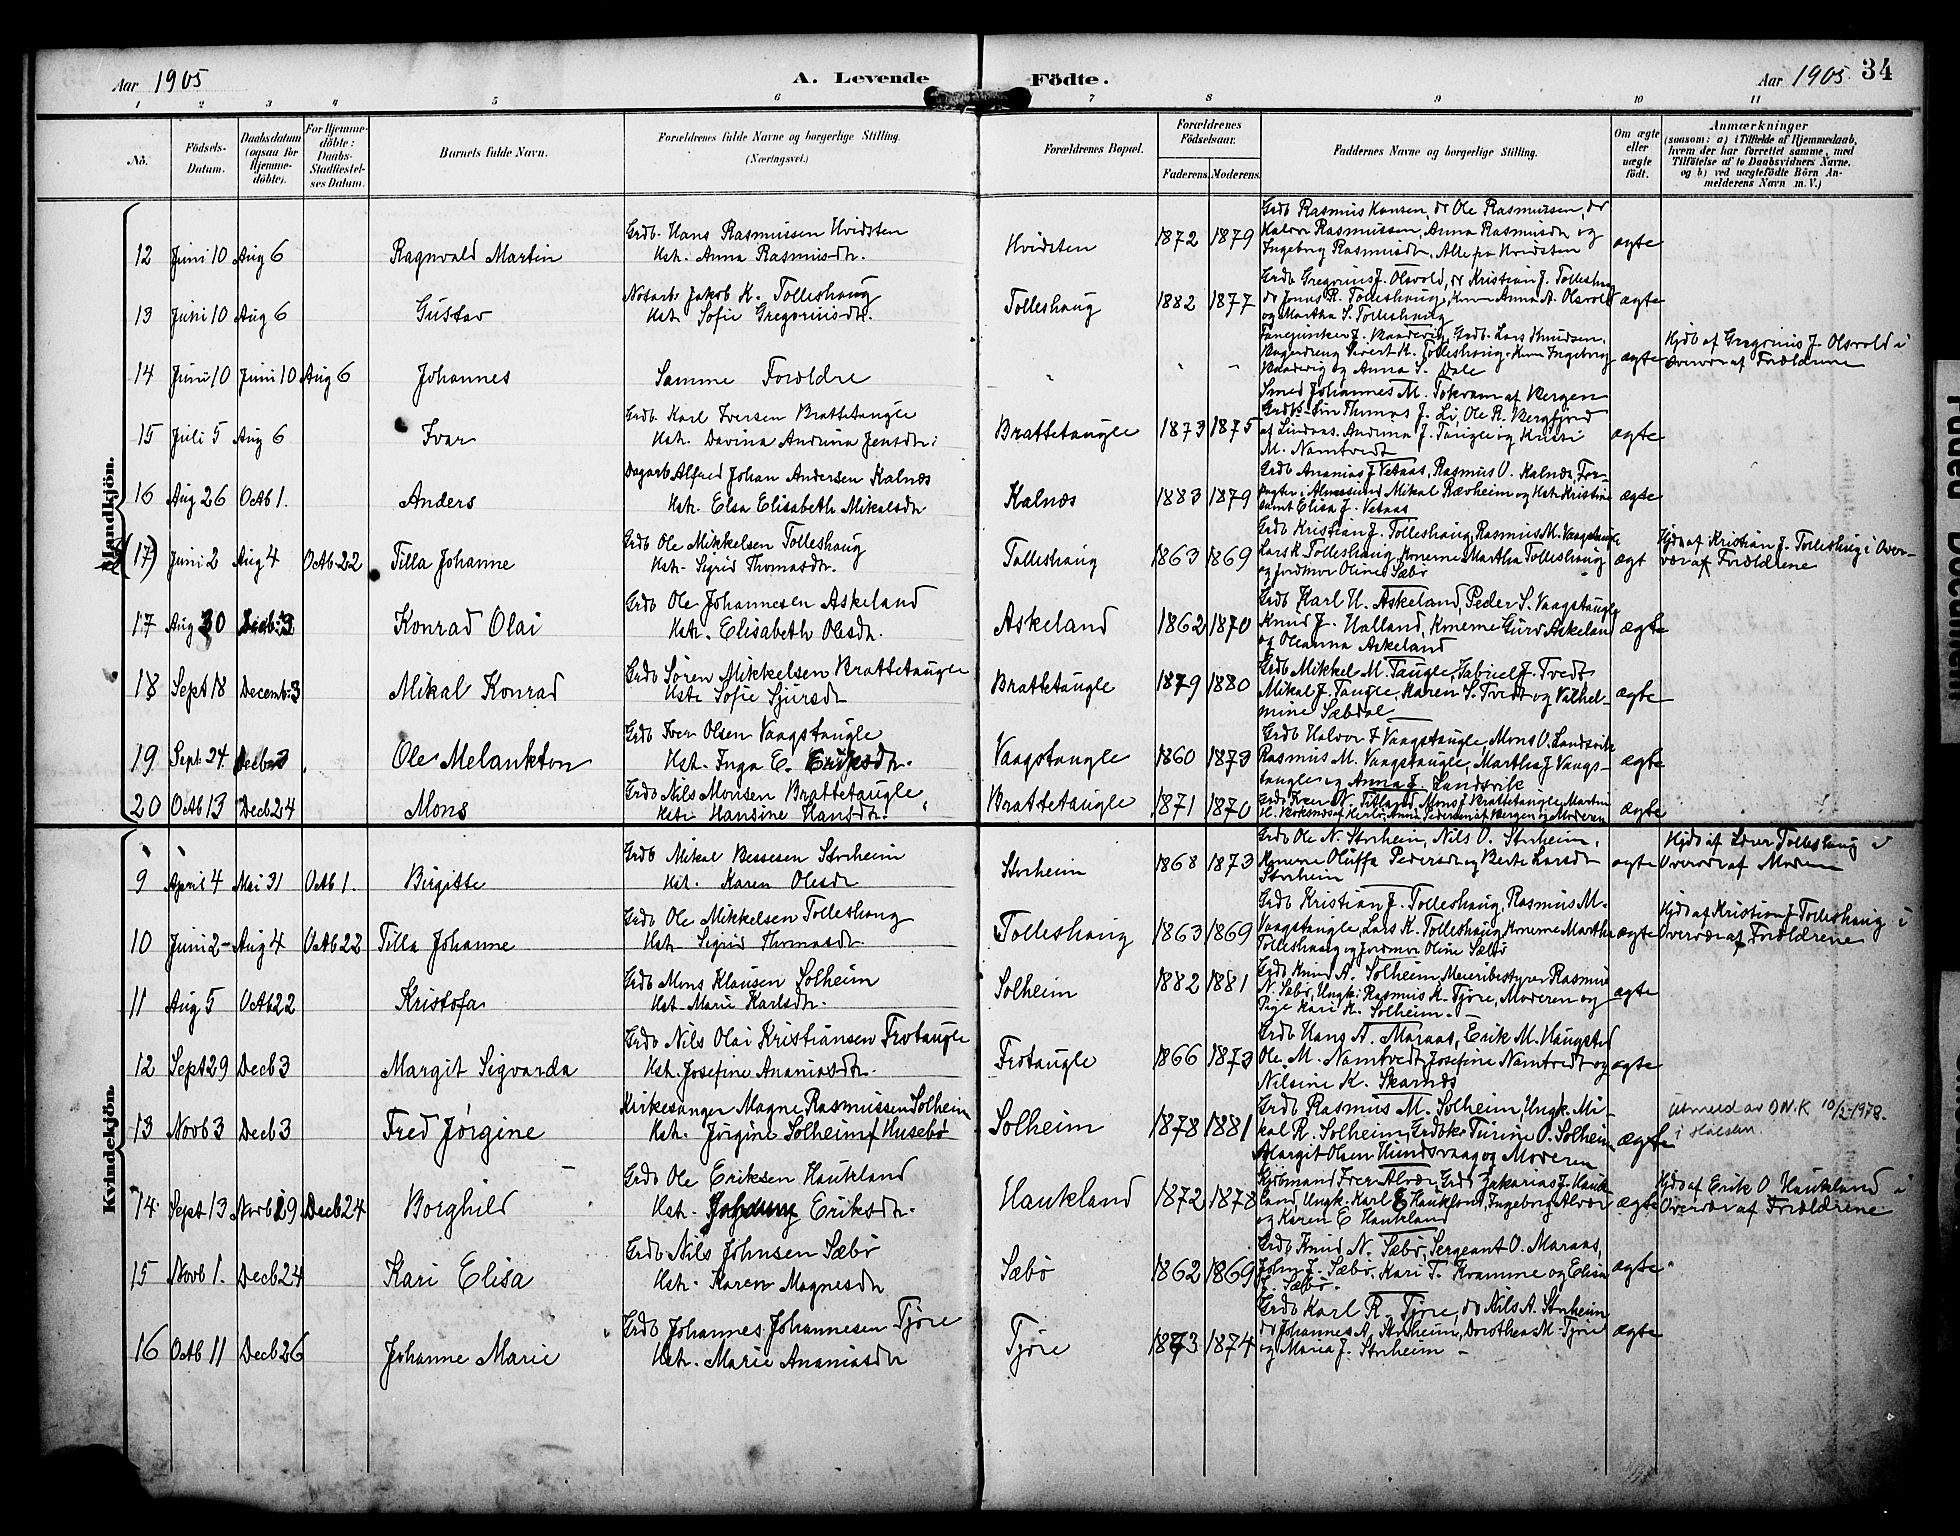 Aar 1905 A. Levende Födte. Aar 1905. 34
1 2 3 4 5 6 7 8 9 10 11
No.
Födsels-
Datum.
Daabsdatum
(ogsaa for
Hjemme-
döbte).
For Hjemme-
döbte:
Daabs-
Stadfæstel-
ses Datum.
Barnets fulde Navn.
Forældrenes fulde Navne og borgerlige Stilling.
(Næringsvei.)
Forældrenes Bopæl.
Forældrenes
Födselsaar.
Faderens. Moderens.
Faddernes Navne og borgerlige Stilling.
Om ægte
eller
uægte
födt.
Anmærkninger
(saasom: a) i Tilfælde af Hjemmedaab,
hvem der har forrettet samme, med
Tilföielse af to Daabsvidners Navne,
og b) ved uægtefödte Börn An-
melderens Navn m. V.)
Mandkjön.
12 Juni 10 Aug 6 Ragnvald Martin
Grdb. Hans Rasmussen Hvidsten
Hst. Anna Rasmusdtr.
Hvidsten 1872 1879
Grdb Rasmus Hansen, do Ole Rasmussen, do
Halvor Rasmussen, Anna Rasmusdtr og
Ingeborg Rasmusdtr. Alle fra Hvidsten
ægte
13 Juni 10 Aug 6 Gustav
Notarb. Jakob K. Tolleshaug
Hst. Sofie Gregoriusdtr.
Tolleshaug 1882 1877
Grdb Gregorius J. Olsvold, do Kristian J. Tolleshaug
do Jonas R. Tolleshaug, Kone Anna A. Olsvold
og Martha S. Tolleshaug
ægte
14 Juni 10 Juni 10 Aug 6 Johannes
Samme Forældre
" " "
J. Vaadevig, Grdb. Lars Knudsen,
Sivert K. Tolleshaug, Kone Ingeborg
Vaadevig og Anna S. Dale
ægte
Hjdb af Gregorius J. Olsvold i
Overvær af Forældrene
15 Juli 5 Aug 6 Ivar
Grdb. Karl Iversen Brattetaugle
Hst. Davina Andrina Jensdtr.
Brattetaugle 1873 1875
Smed Johannes M. Tokvam af Bergen
Thomas J. Li, Ole R. Bergfjord
af Lindaas. Andrina J. Taugle og Kristi
M. Namtvedt
ægte
16 Aug 26 Octb 1. Anders
Dagarb Alfred Johan Andersen Kalnæs
Hst. Elsa Elisabeth Mikalsdtr
Kalnæs 1883 1879
Grdb Ananias J Vetaas, Rasmus O. Kalnæs, For-
pagter i Alverssund Mikal Rævheim og Hst. Kristine
samt Elisa J. Vetaas
ægte
(17) Juni 2 Aug 4 Octb 22 Tilla Johanne
Grdb Ole Mikkelsen Tolleshaug
Hst. Sigrid Thomasdtr.
Tolleshaug 1863 1869
Grdb Kristian J. Tolleshaug, Rasmus M. Vaagstaugle
Lars K. Tolleshaug, Konerne Martha Tolleshaug
og Jordmor Oline Sæbø
ægt
Hjdb af Kristian J. Tolleshaug i Over-
vær af Forældrene
17 Aug 30 Decb: 3 Konrad Olai
Grdb Ole Johannesen Askeland
Hst. Elisabeth Olesdtr.
Askeland 1862 1870
Grdb Karl H. Askeland, Peder S. Vaagstaugle
Knud J. Halland, Konerne Guro Askeland
og Oleanna Askeland
ægte
18 Sept 18 Decemb: 3 Mikal Konrad
Grdb Søren Mikkelsen Brattetaugle
Hst. Sofie Sjursdtr
Brattetaugle 1879 1880
Grdb Mikkel M. Taugle, Gabriel J. Tvedt
Mikal J. Taugle, Karen S. Tvedt og Vilhel-
mine Sæbdal
ægte
19 Sept: 24 Decb 3 Ole Melankton
Grdb Iver Olsen Vaagstaugle
Hst. Inga E. Eriksdtr.
Vaagstaugle 1860 1873
Grdb Halvor J Vaagstaugle, Mons O. Landsvik
Rasmus M. Vaagstaugle, Martha J Vaags-
taugle og Anna J. Landsvik
ægte
20 Octb 13 Decb 24 Mons
Grdb Nils Monsen Brattetaugle
Hst. Hansine Hansdtr.
Brattetaugle 1871 1870
Grdb Iver N. Titland, Mons J. Brattetaugle, Martin
Anna Pedersen af Bergen og Moderen
ægte
Kvindekjön.
9 April 4 Mai 31 Octb 1. Birgitte
Grdb Mikal Bessesen Storheim
Hst. Karen Olesdtr
Storheim 1868 1873
Grdb Ole N. Storheim, Nils O. Storheim,
Konerne Oluffa Pedersdtr og Berte Larsdtr
Storheim
ægte
Hjdb af Lærer Tolleshaug i
Overvær af Moderen
10 Juni 2 Aug 4 Octb 22 Tilla Johanne
Grdb Ole Mikkelsen Tolleshaug
Hst. Sigrid Thomasdtr.
Tolleshaug 1863 1869
Grdb Kristian J. Tolleshaug, Rasmus M.
Vaagstaugle, Lars K. Tolleshaug, Konerne Martha
Tolleshaug og Jordmor Oline Sæbø
ægte
Hjdb af Kristian J Tolleshaug i
Overvær af Forældrene
11 Aug 5 Octb 22 Kristofa
Grdb Mons Klausen Solheim
Hst. Marie Karlsdtr.
Solheim 1882 1881
Grdb Knud A. Solheim, Meieribestyrer Rasmus
N. Sæbø, Ungk. Rasmus K. Tjøre, Moderen og
Pige Kari K. Solheim.
ægte
12 Sept 29 Decb 3 Margit Sigvarda
Grdb Nils Olai Kristiansen Frotaugle
Hst. Josefine Ananiasdtr.
Frotaugle 1866 1873
Grdb Hans A. Maraas, Erik M. Haugstad
Ole M. Namtvedt, Josefine Namtvedt og
Nilsine K. Skarnæs
ægte
13 Novb 3 Decb 3 Fred Jørgine
Kirkesanger Magne Rasmussen Solheim
Hst. Jørgine Solheim f. Husebø
Solheim 1878 1881
Grdb Rasmus M. Solheim, Ungk. Mi-
kal R. Solheim, Turine O. Solheim
Margit Olsen Hundsvaag og Moderen
ægte
utmeld av D.N.K. 10/2-1978.
i Halsten.
14 Sept 13 Novb 19 Decb 24 Borghild
Grdb Ole Eriksen Haukland
Hst. Eriksdtr.
Haukland 1872 1878
Iver Alvær, Grdb Zakarias J. Hauk-
land, Ungk. Karl E Haukland, Ingeborg Alvær
og Karen E Haukland
ægte
Hjdb af Erik O Haukland i
Overvær af Forældrene
15 Novb 1. Decb 24 Kari Elisa
Grdb Nils Johnsen Sæbø
Hst. Karen Magnesdtr
Sæbø 1862 1869
Grdb Knud N. Sæbø, Sergeant O. Maraas,
John J. Sæbø, Kari T. Kvamme og Elisa
J. Sæbø.
ægte
16 Octb 11 Decb 26 Johanne Marie
Grdb Johannes Johannesen Tjøre
Hst. Marie Ananiasdtr
Tjøre 1873 1874
Grdb Karl R. Tjøre, do Nils A. Storheim
do Johannes A. Storheim, Dorothea M. Tjøre
og Maria J. Storheim
ægte